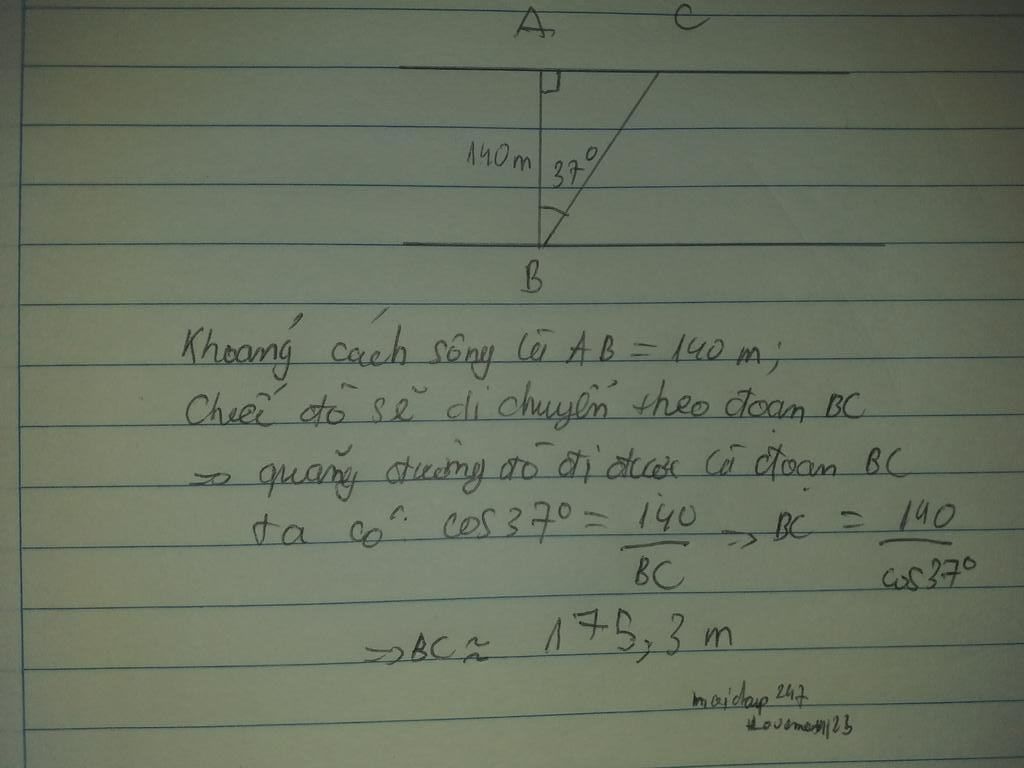 A C
140m 37°
B
Khoảng cách sông là AB = 140 m;
Chiếc đò sẽ di chuyển theo đoạn BC
=> quãng đường đò đi được là đoạn BC
ta có: cos37° = 140/BC => BC = 140/cos37°
=> BC ≈ 175,3 m